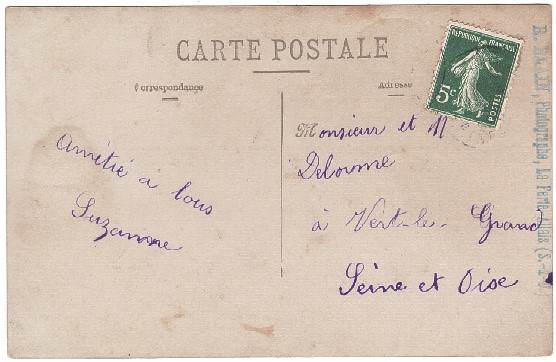 CARTE POSTALE
Correspondance
Adresse
RÉPUBLIQUE FRANÇAISE
5c
POSTES
Amitié à tous
Suzanne
Monsieur et M
Delorme
à Vert-le-Grand
Seine et Oise
Photographe, La Ferté-Alais (S.-&-O.)